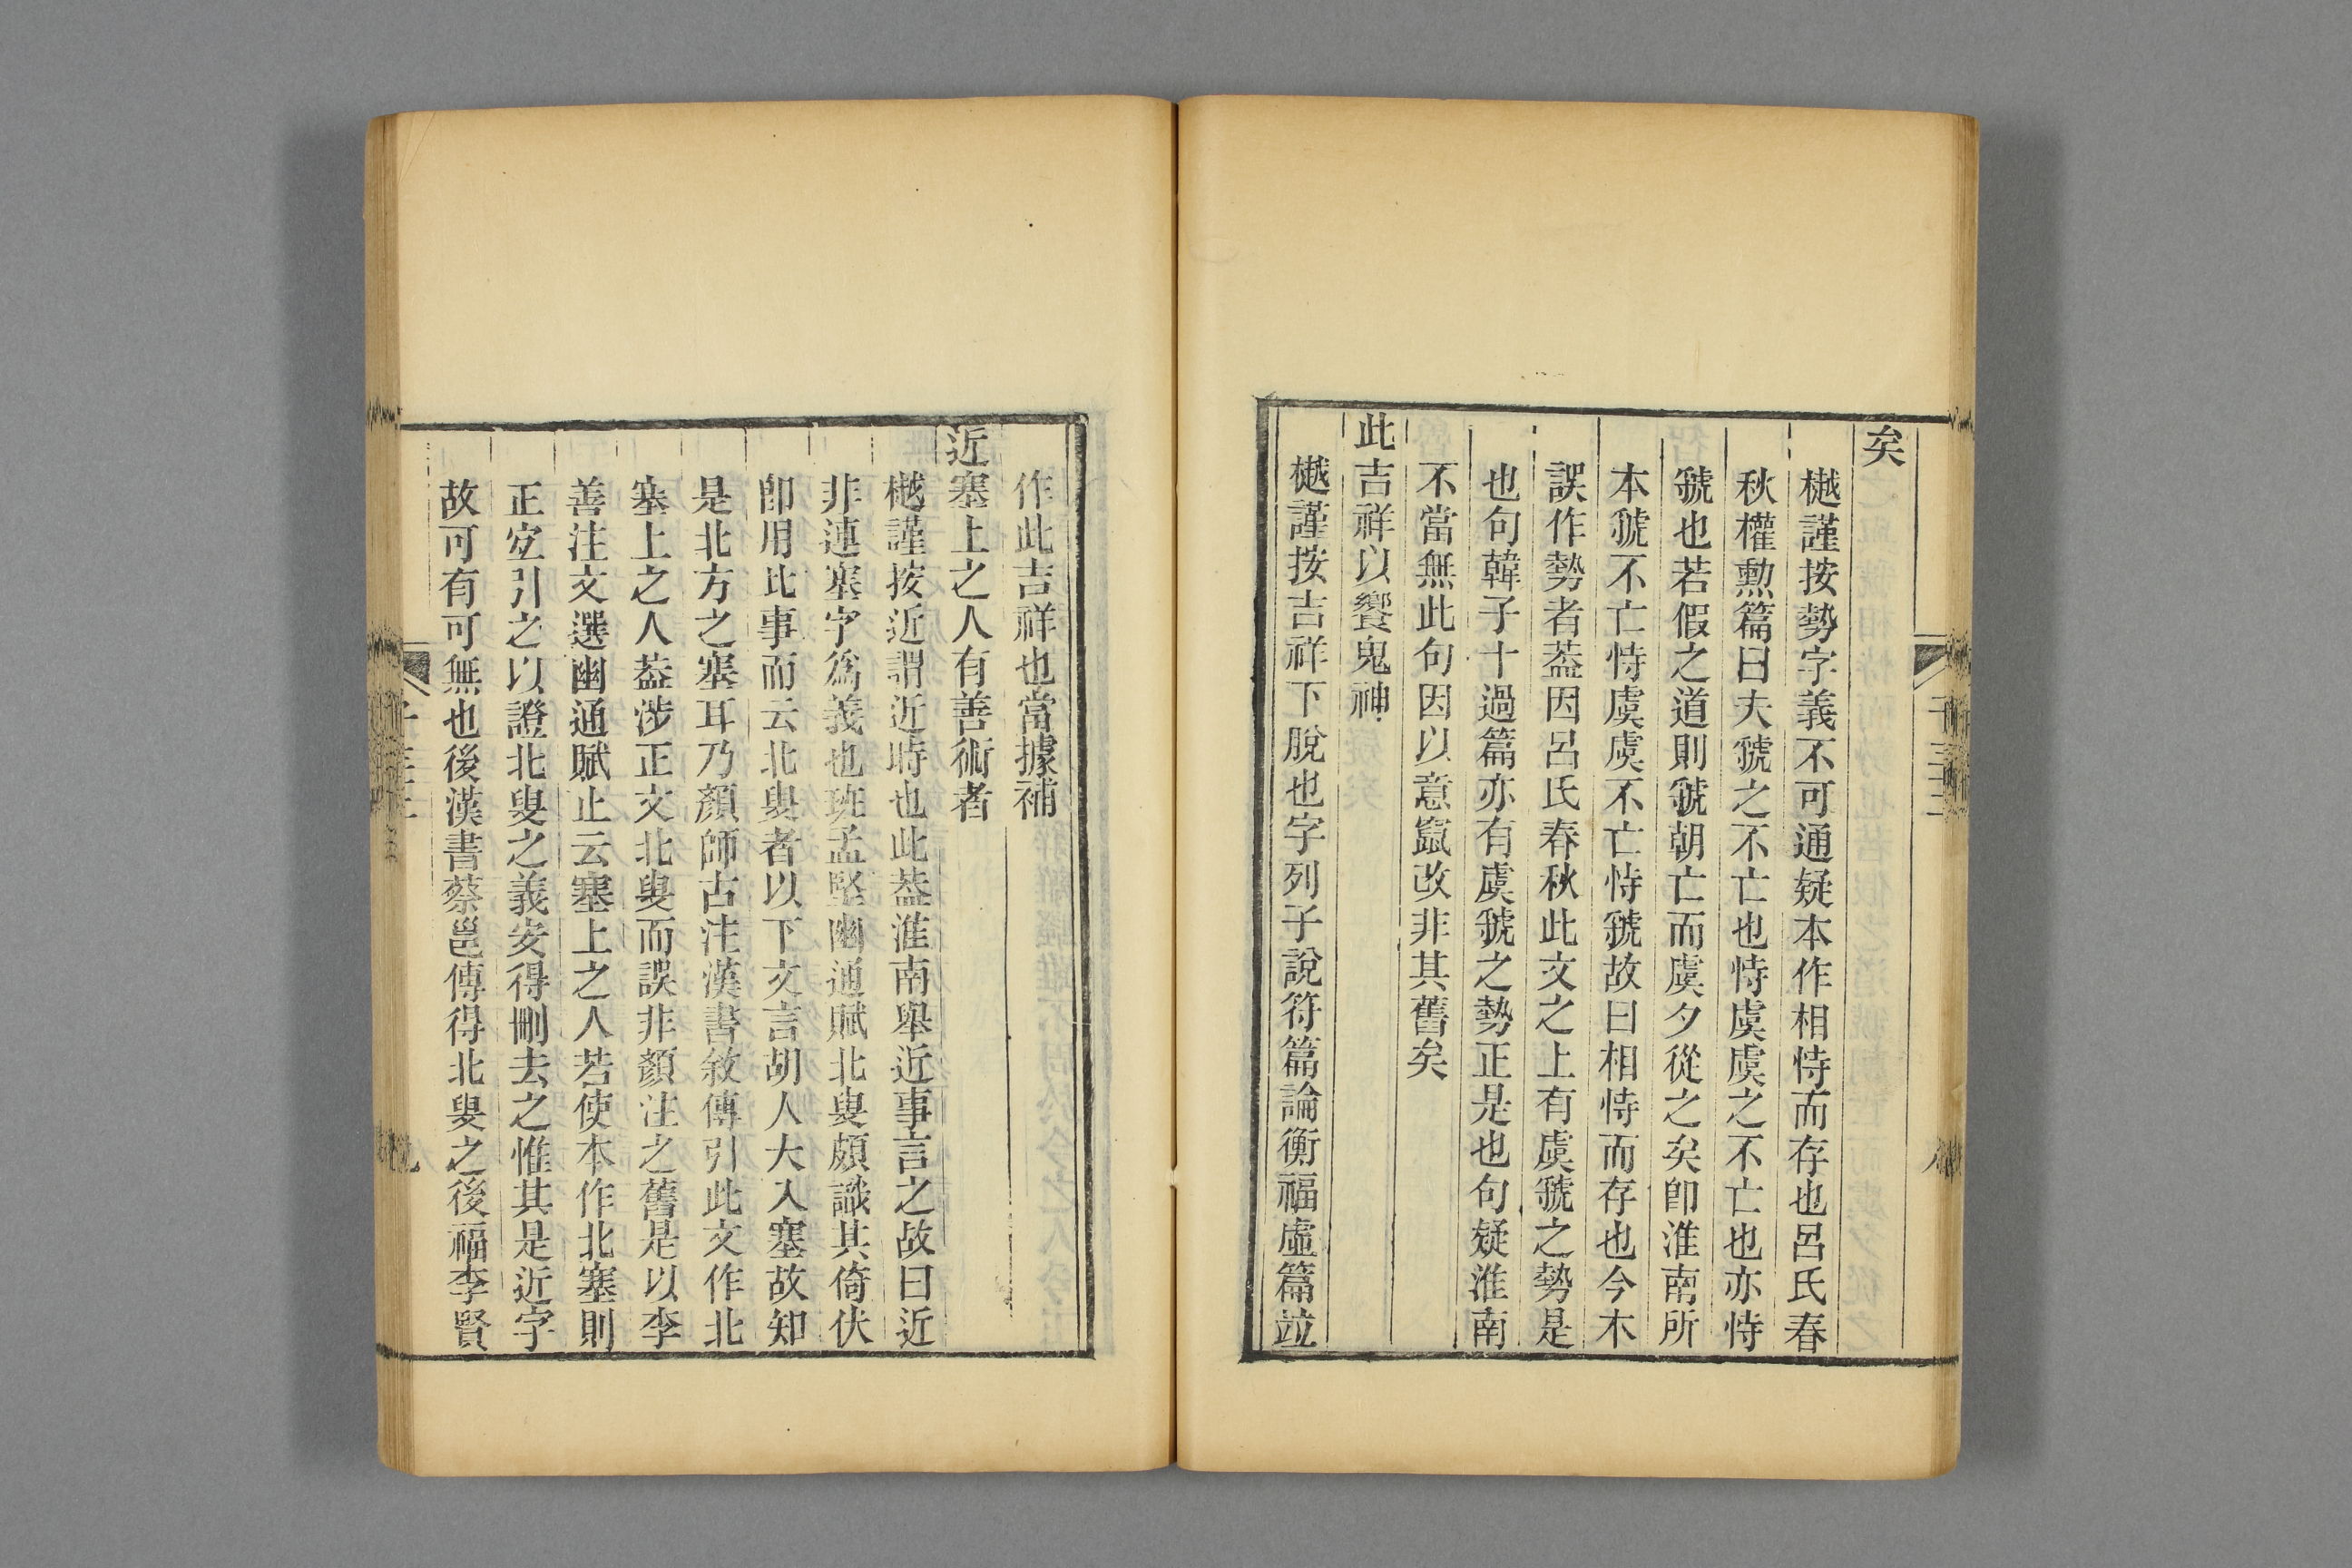 矣
樾謹按勢字義不可通疑本作相恃而存也呂氏春
秋權勲篇曰夫虢之不亡也恃虞虞之不亡也亦恃
虢也若假之道則虢朝亡而虞夕從之矣卽淮南所
本虢不亡恃虞虞不亡恃虢故曰相恃而存也今本
誤作勢者葢因呂氏春秋此文之上有虞虢之勢是
也句韓子十過篇亦有虞虢之勢正是也句疑淮南
不當無此句因以意竄改非其舊矣
此吉祥以饗鬼神
樾謹按吉祥下脫也字列子說符篇論衡福虛篇竝
作此吉祥也當據補
近塞上之人有善術者
樾謹按近謂近時也此葢淮南舉近事言之故曰近
非連塞字爲義也班孟堅幽通賦北叟頗識其倚伏
卽用此事而云北叟者以下文言胡人大入塞故知
是北方之塞耳乃顏師古注漢書敘傳引此文作北
塞上之人葢涉正文北叟而誤非顏注之舊是以李
善注文選幽通賦止云塞上之人若使本作北塞則
正宐引之以證北叟之義安得刪去之惟其是近字
故可有可無也後漢書蔡邕傳得北叟之後福李賢